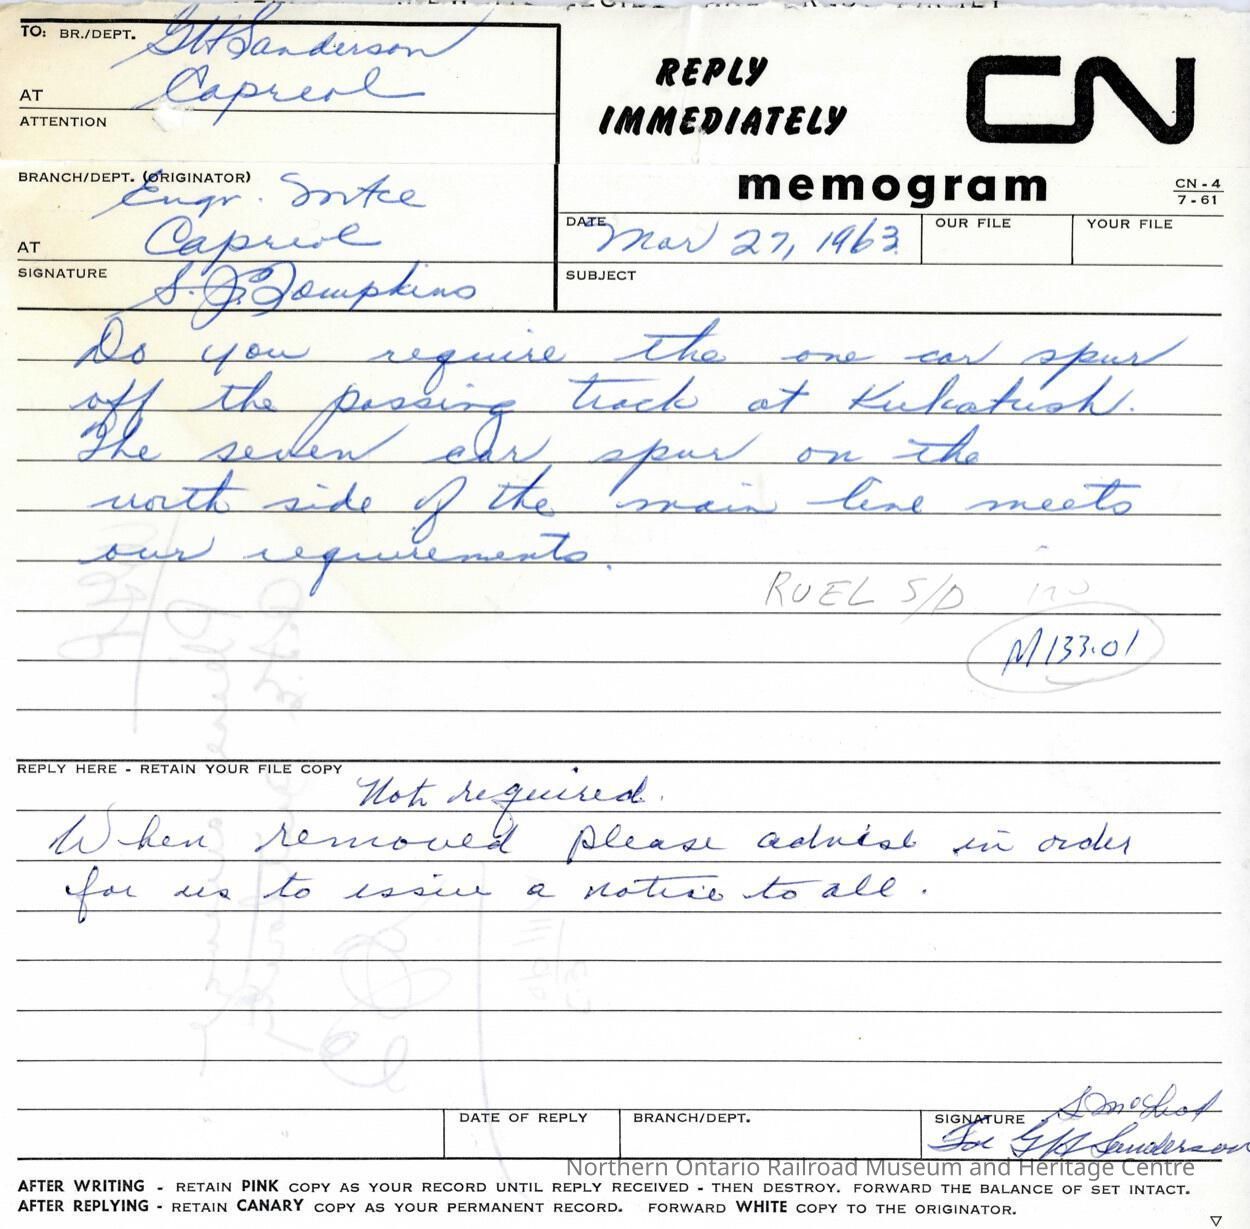 TO: BR./DEPT. GH Sanderson
AT Capreol
ATTENTION
REPLY
IMMEDIATELY
CN
memogram
CN-4
7-61
BRANCH/DEPT. (ORIGINATOR) Engr. Mtce
AT Capreol
SIGNATURE S. J. Tompkins
DATE Mar 27, 1963
OUR FILE
YOUR FILE
SUBJECT
Do you require the one car spur
off the passing track at Kukatush.
The seven car spur on the
north side of the main line meets
our requirements.
RUEL S/D no
M133.01
REPLY HERE - RETAIN YOUR FILE COPY
Not required.
When removed please advise in order
for us to issue a notice to all.
DATE OF REPLY
BRANCH/DEPT.
SIGNATURE S McLeod
For GH Sanderson
Northern Ontario Railroad Museum and Heritage Centre
AFTER WRITING - RETAIN PINK COPY AS YOUR RECORD UNTIL REPLY RECEIVED - THEN DESTROY. FORWARD THE BALANCE OF SET INTACT.
AFTER REPLYING - RETAIN CANARY COPY AS YOUR PERMANENT RECORD. FORWARD WHITE COPY TO THE ORIGINATOR.